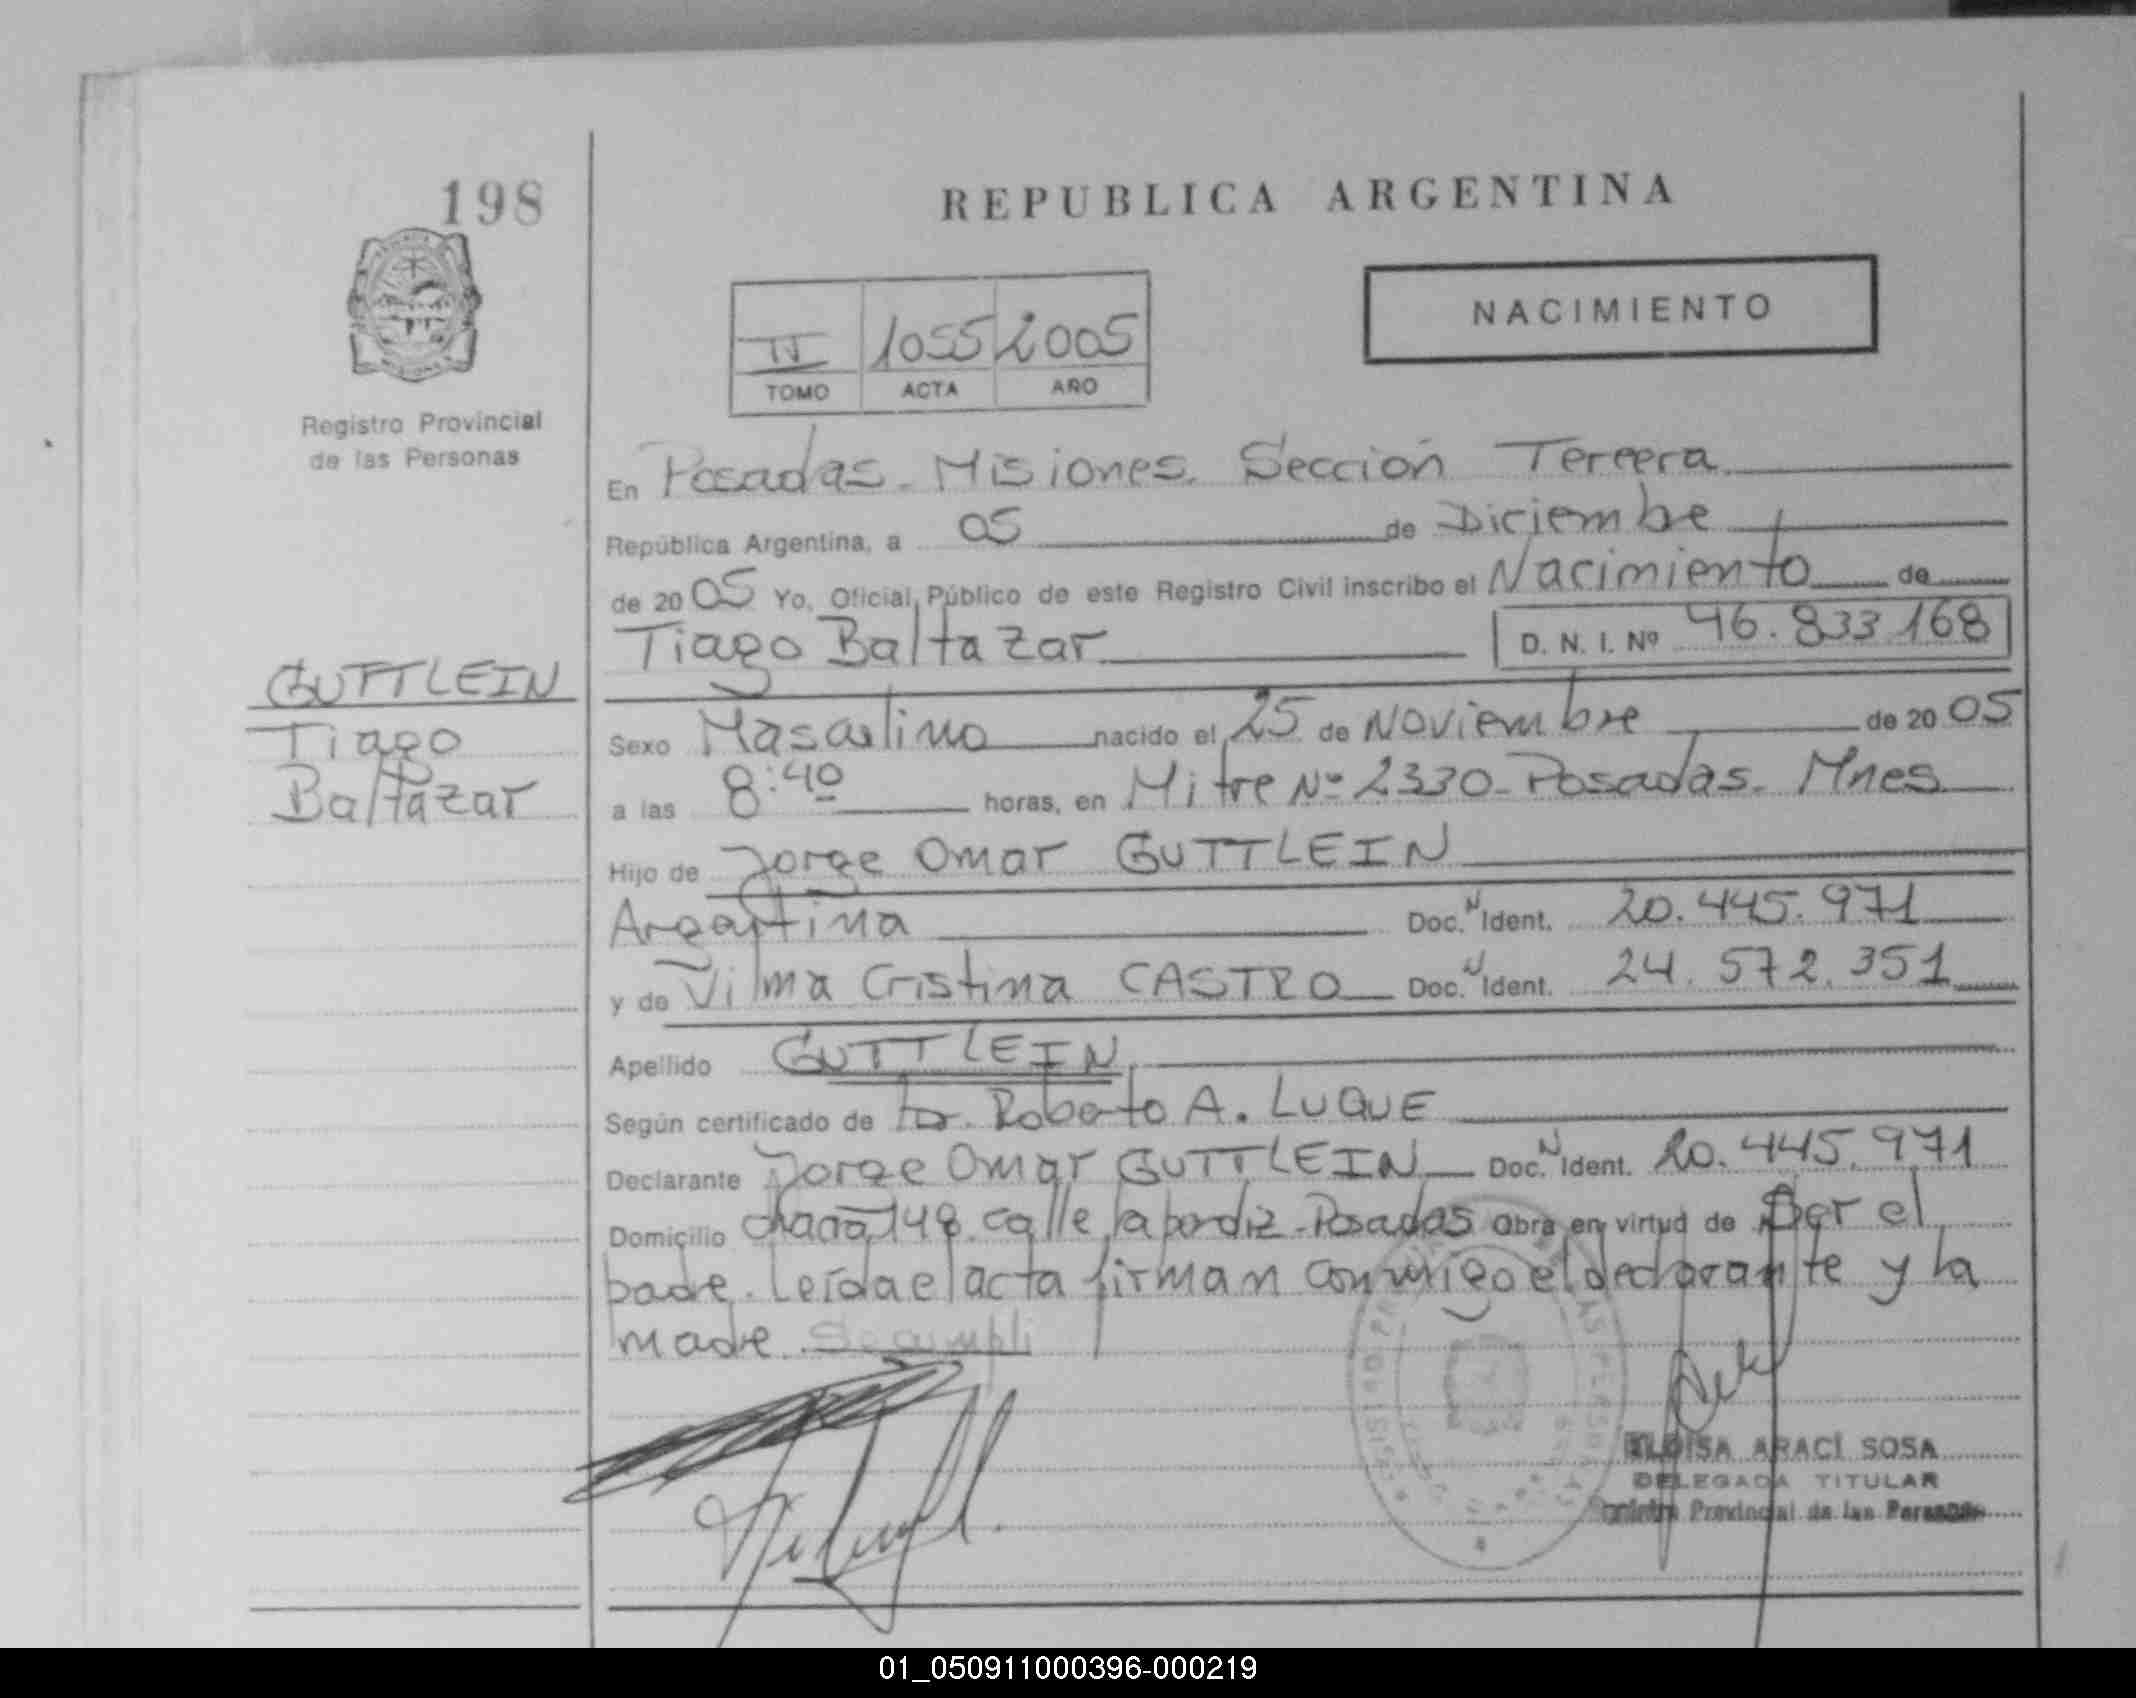 198
REPUBLICA ARGENTINA
NACIMIENTO
II 1055 2005
TOMO ACTA AÑO
Registro Provincial
de las Personas
En Posadas. Misiones. Sección Tercera
República Argentina, a 05 de Diciembre
de 2005 Yo, Oficial Público de este Registro Civil inscribo el Nacimiento de
Tiago Baltazar D. N. I. Nº 46.833.168
GUTTLEIN
Tiago
Baltazar
Sexo Masculino nacido el 25 de Noviembre de 2005
a las 8:40 horas, en Mitre Nº 2330 - Posadas. Mnes
Hijo de Jorge Omar GUTTLEIN
Argentina Doc. N Ident. 20.445.971
y de Vilma Cristina CASTRO Doc. N Ident. 24.572.351
Apellido GUTTLEIN
Según certificado de Dr. Roberto A. LUQUE
Declarante Jorge Omar GUTTLEIN Doc. N Ident. 20.445.971
Domicilio chacra 148 calle Posadas Obra en virtud de Ser el
padre. Leída el acta firman conmigo el declarante y la
madre.
ELOISA ARACÍ SOSA
DELEGADA TITULAR
Registro Provincial de las Personas
01_050911000396-000219